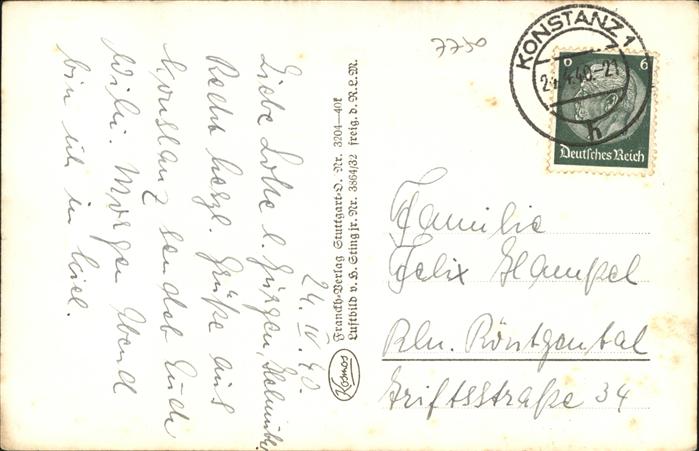 24. IV. 40.
Liebe Lotte l. Jürgen, Helmut
Recht herzl. Grüße aus
Konstanz sendet Euch
Willi. Morgen Abend
bin ich in Kiel.
Kosmos
Franckh-Verlag Stuttgart-O. Nr. 3204—40k
Luftbild v. H. Stingst. Nr. 3864/32 freig. d. R.L.M.
7750
KONSTANZ 1
24.4.40.-21
h
6 6
Deutsches Reich
Familie
Felix Hampel
Bln. Röntgental
34